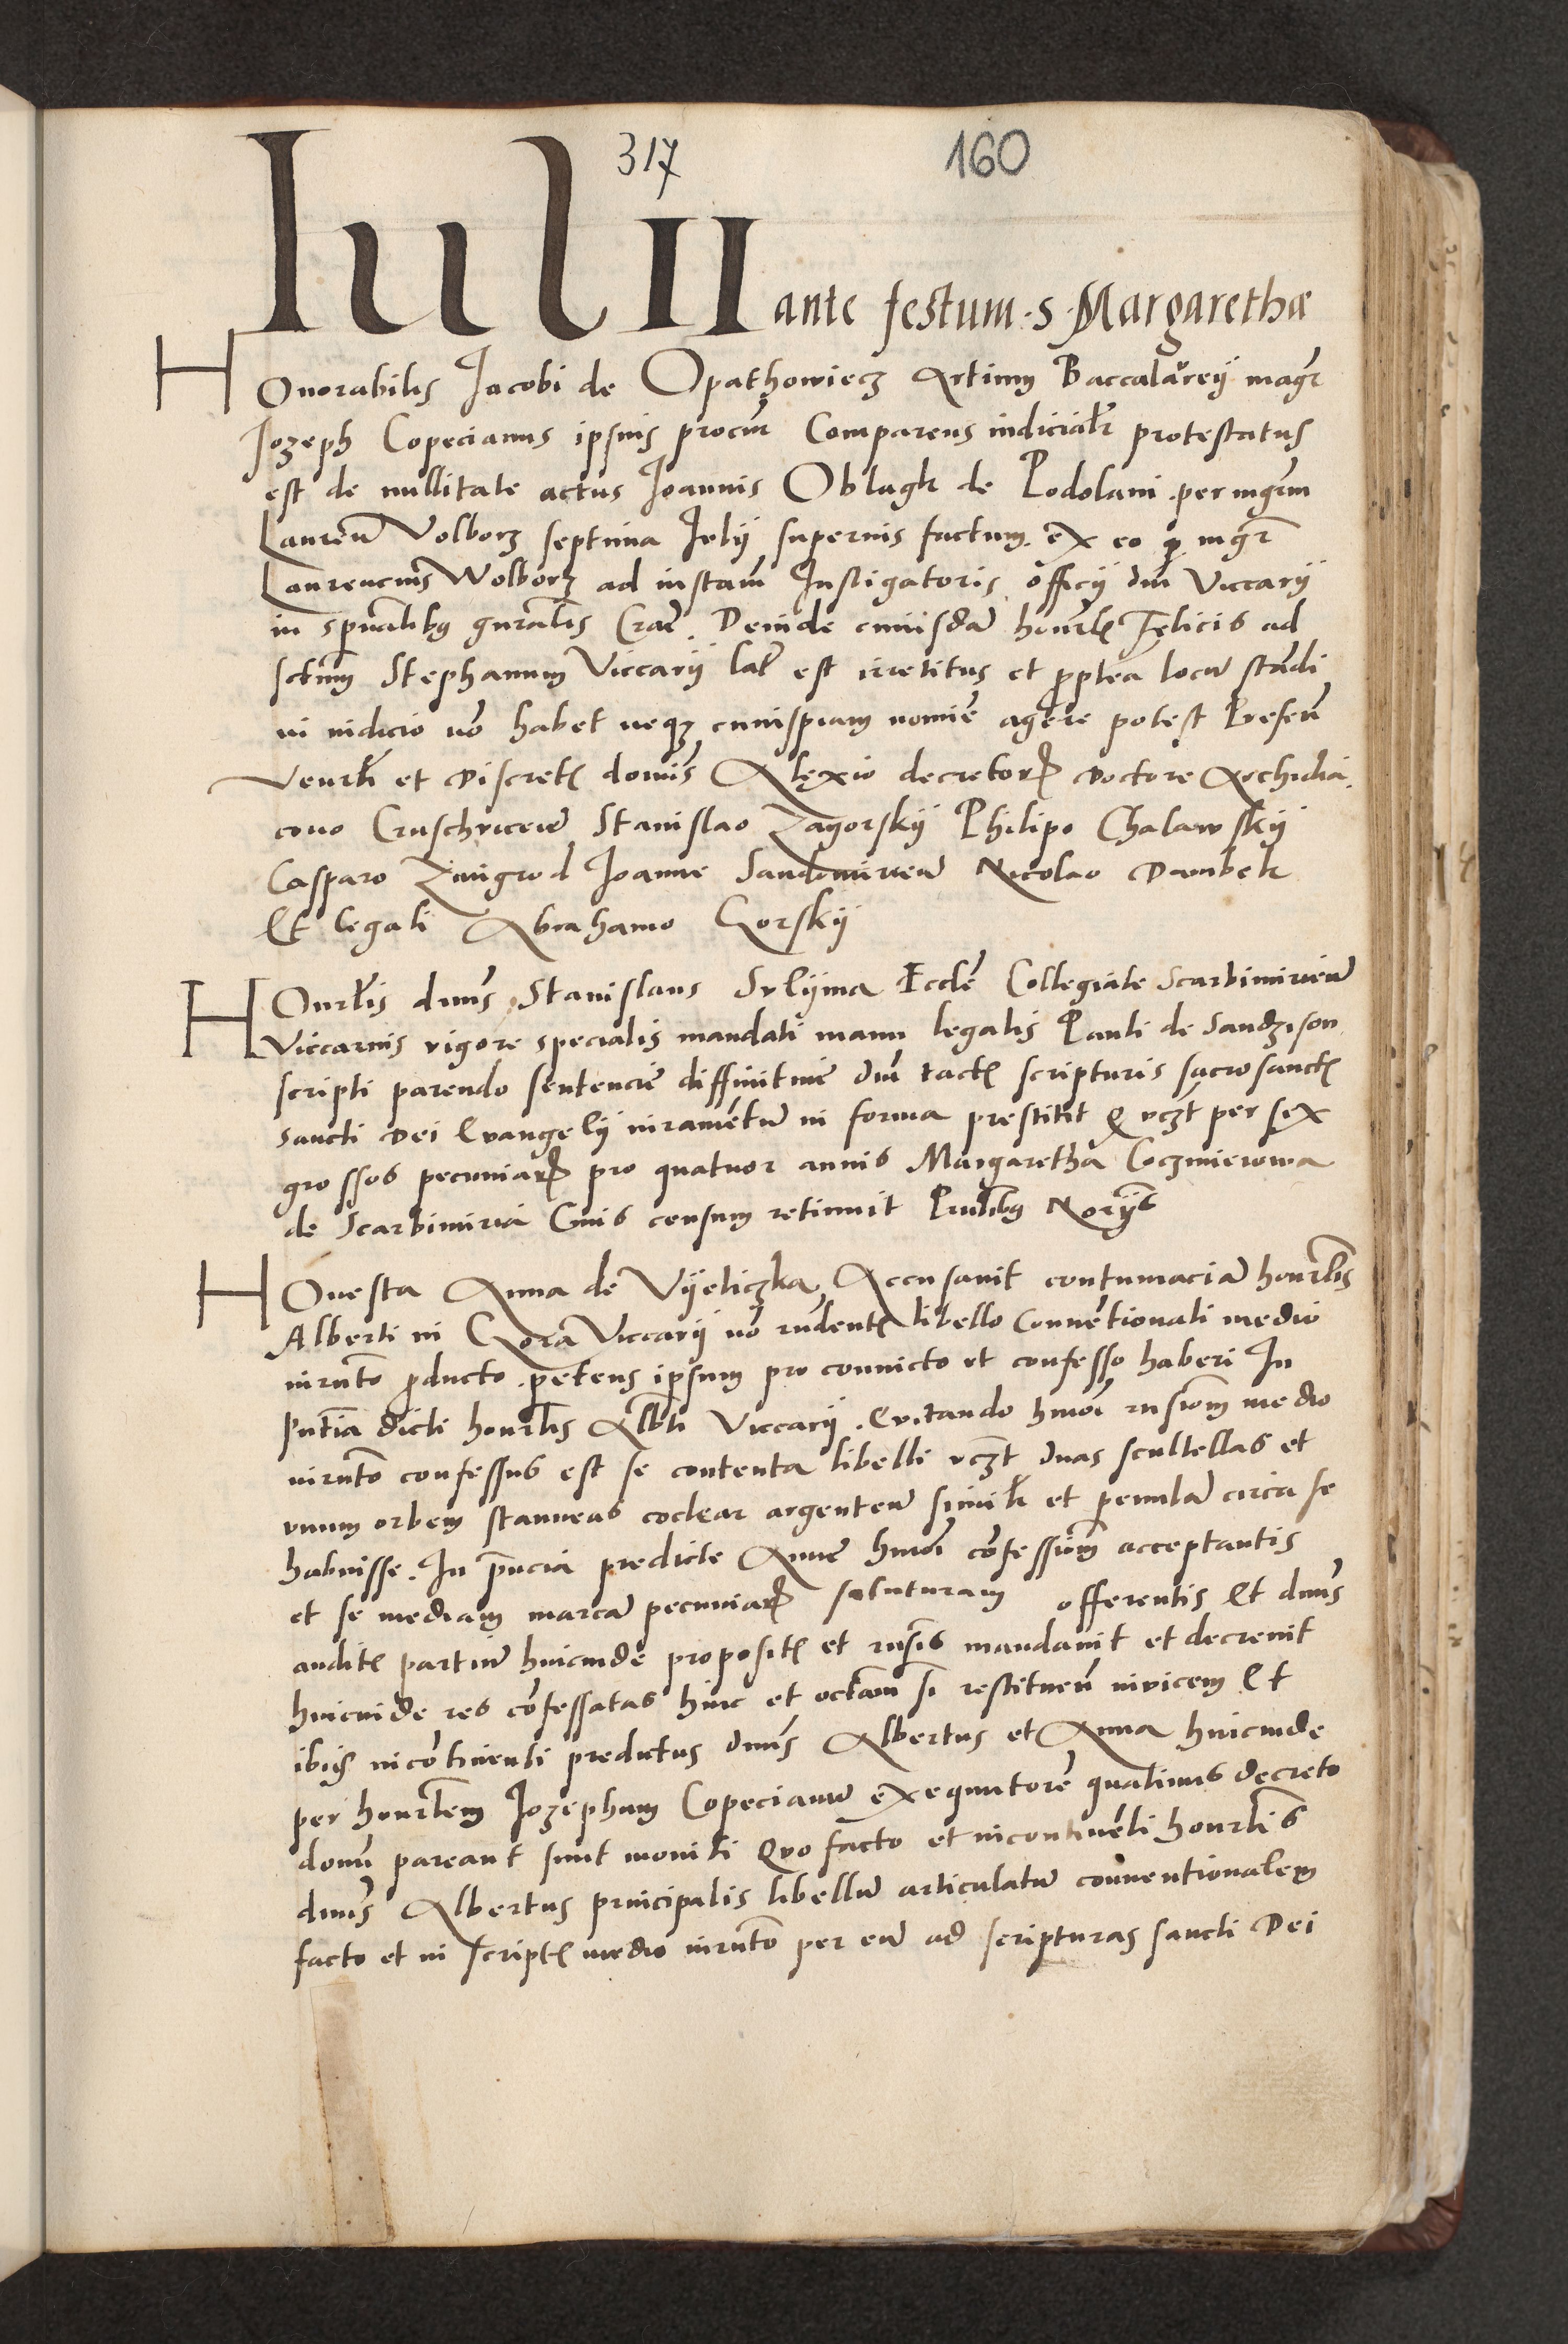 317 160
Iulii ante festum · s · Margarethæ
Honorabilis Jacobi de Opathowiecz Artium Baccalarey magr
Jozeph Copecianus ipsius procur Comparens iudicialr protestatus
est de nullitate actus Joannis Oblagk de Podolani per mgrm
Lauren Volborz septima July superius factum. ex eo q mgr
Laurencius Wolborz ad instam Instigatoris officij dni Viccarij
in spualibus gnralis Crac. Deinde cuiusda honrls Felicis ad
sctum Stephanum Viccarij lat est irretitus et pptea locu standi
in iudicio no habet neqz cuiuspiam nomie agere potest Presen
Venrli et Discret dominis Alexio decretor Doctore Archidia
cono Cruschvicien Stanislao Zagorskij Philipo Chalawskij
Casparo Zmigrod Joanne Sandomirien Nicolao Dambek
Et legali Abrahamo Gorskij
Honrlis dnus Stanislaus Sulijma Eccle Collegiate Scarbimirien
Viccarius vigore specialis mandati manu legalis Pauli de Sandzison
scripti parendo sentencie diffinitive dni tactis scripturis sacrosanctis
sancti Dei Evangelij iuramentu in forma prestitit Q vczt per sex
grossos pecuniar pro quatuor annis Margaretha Coczmierowa
de Scarbimiria Cuis censum retinuit Prntibus Norijs
Honesta Anna de Vijeliczka Accusavit contumaciam honrlis
Alberti in Gora Viccarij no rndentis libello Conventionali medio
iurnto pducto. petens ipsum pro convicto et confesso haberi In
pntia dicti honrlis Albti Viccarij. Evitando hmoi rnsionem medio
iurnto confessus est se contenta libelli vczt duas scultellas et
unum orbem stanneas coclear argenteu similr et penulam circa se
habuisse. In pncia predicte Anne hmoi confessionem acceptantis
et se mediam marcam pecuniar soluturam offerentis Et dnus
auditis partium hincinde propositis et rnsis mandavit et decrevit
hincinde res confessatas hinc et octam si restituen invicem Et
ibiq incontinenti predictus dnus Albertus et Anna hincinde
per honrlem Jozephum Copecianu exequutorem quatinus decreto
domi pareant sunt moniti Quo facto et incontinenti honrlis
dnus Albertus principalis libellum articulatum conventionalem
facto et in scriptis medio iurnto per eum ad scripturas sancti Dei